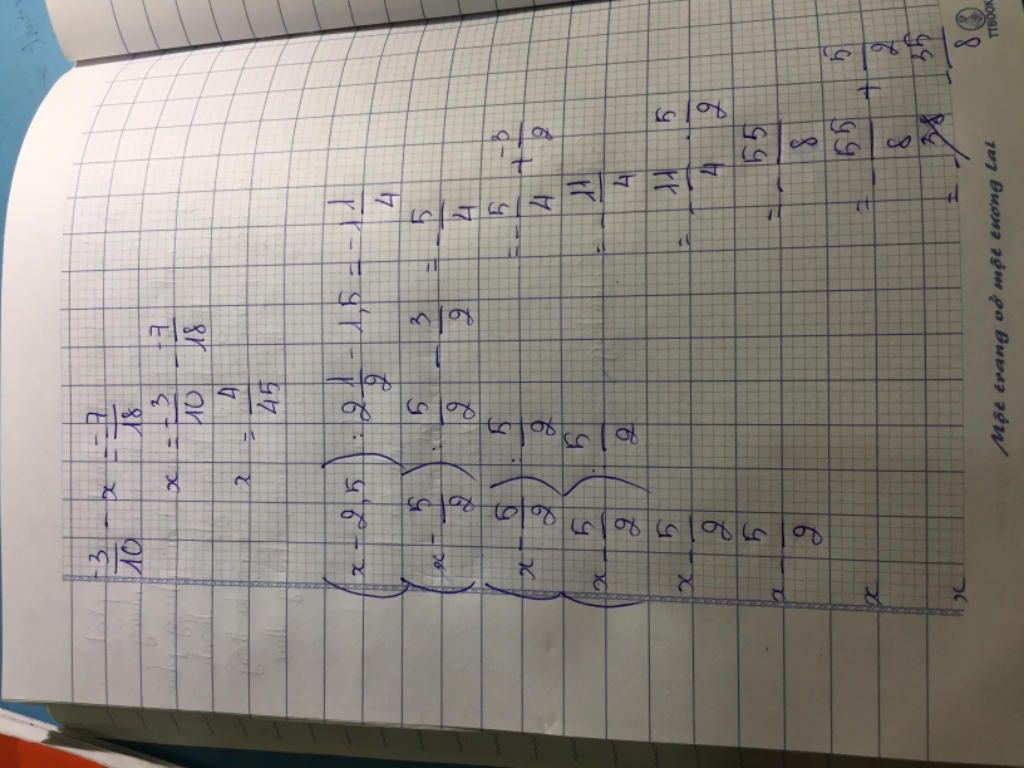 -3/10 - x = -7/18
x = -3/10 - -7/18
x = 4/45
(x - 2,5) : 2 1/2 - 1,5 = -1 1/4
(x - 5/2) : 5/2 - 3/2 = -5/4
(x - 5/2) : 5/2 = -5/4 + -3/2
(x - 5/2) : 5/2 = -11/4
x - 5/2 = -11/4 . 5/2
x - 5/2 = -55/8
x = -55/8 + 5/2
x = -35/8
Một trang vở một tương lai